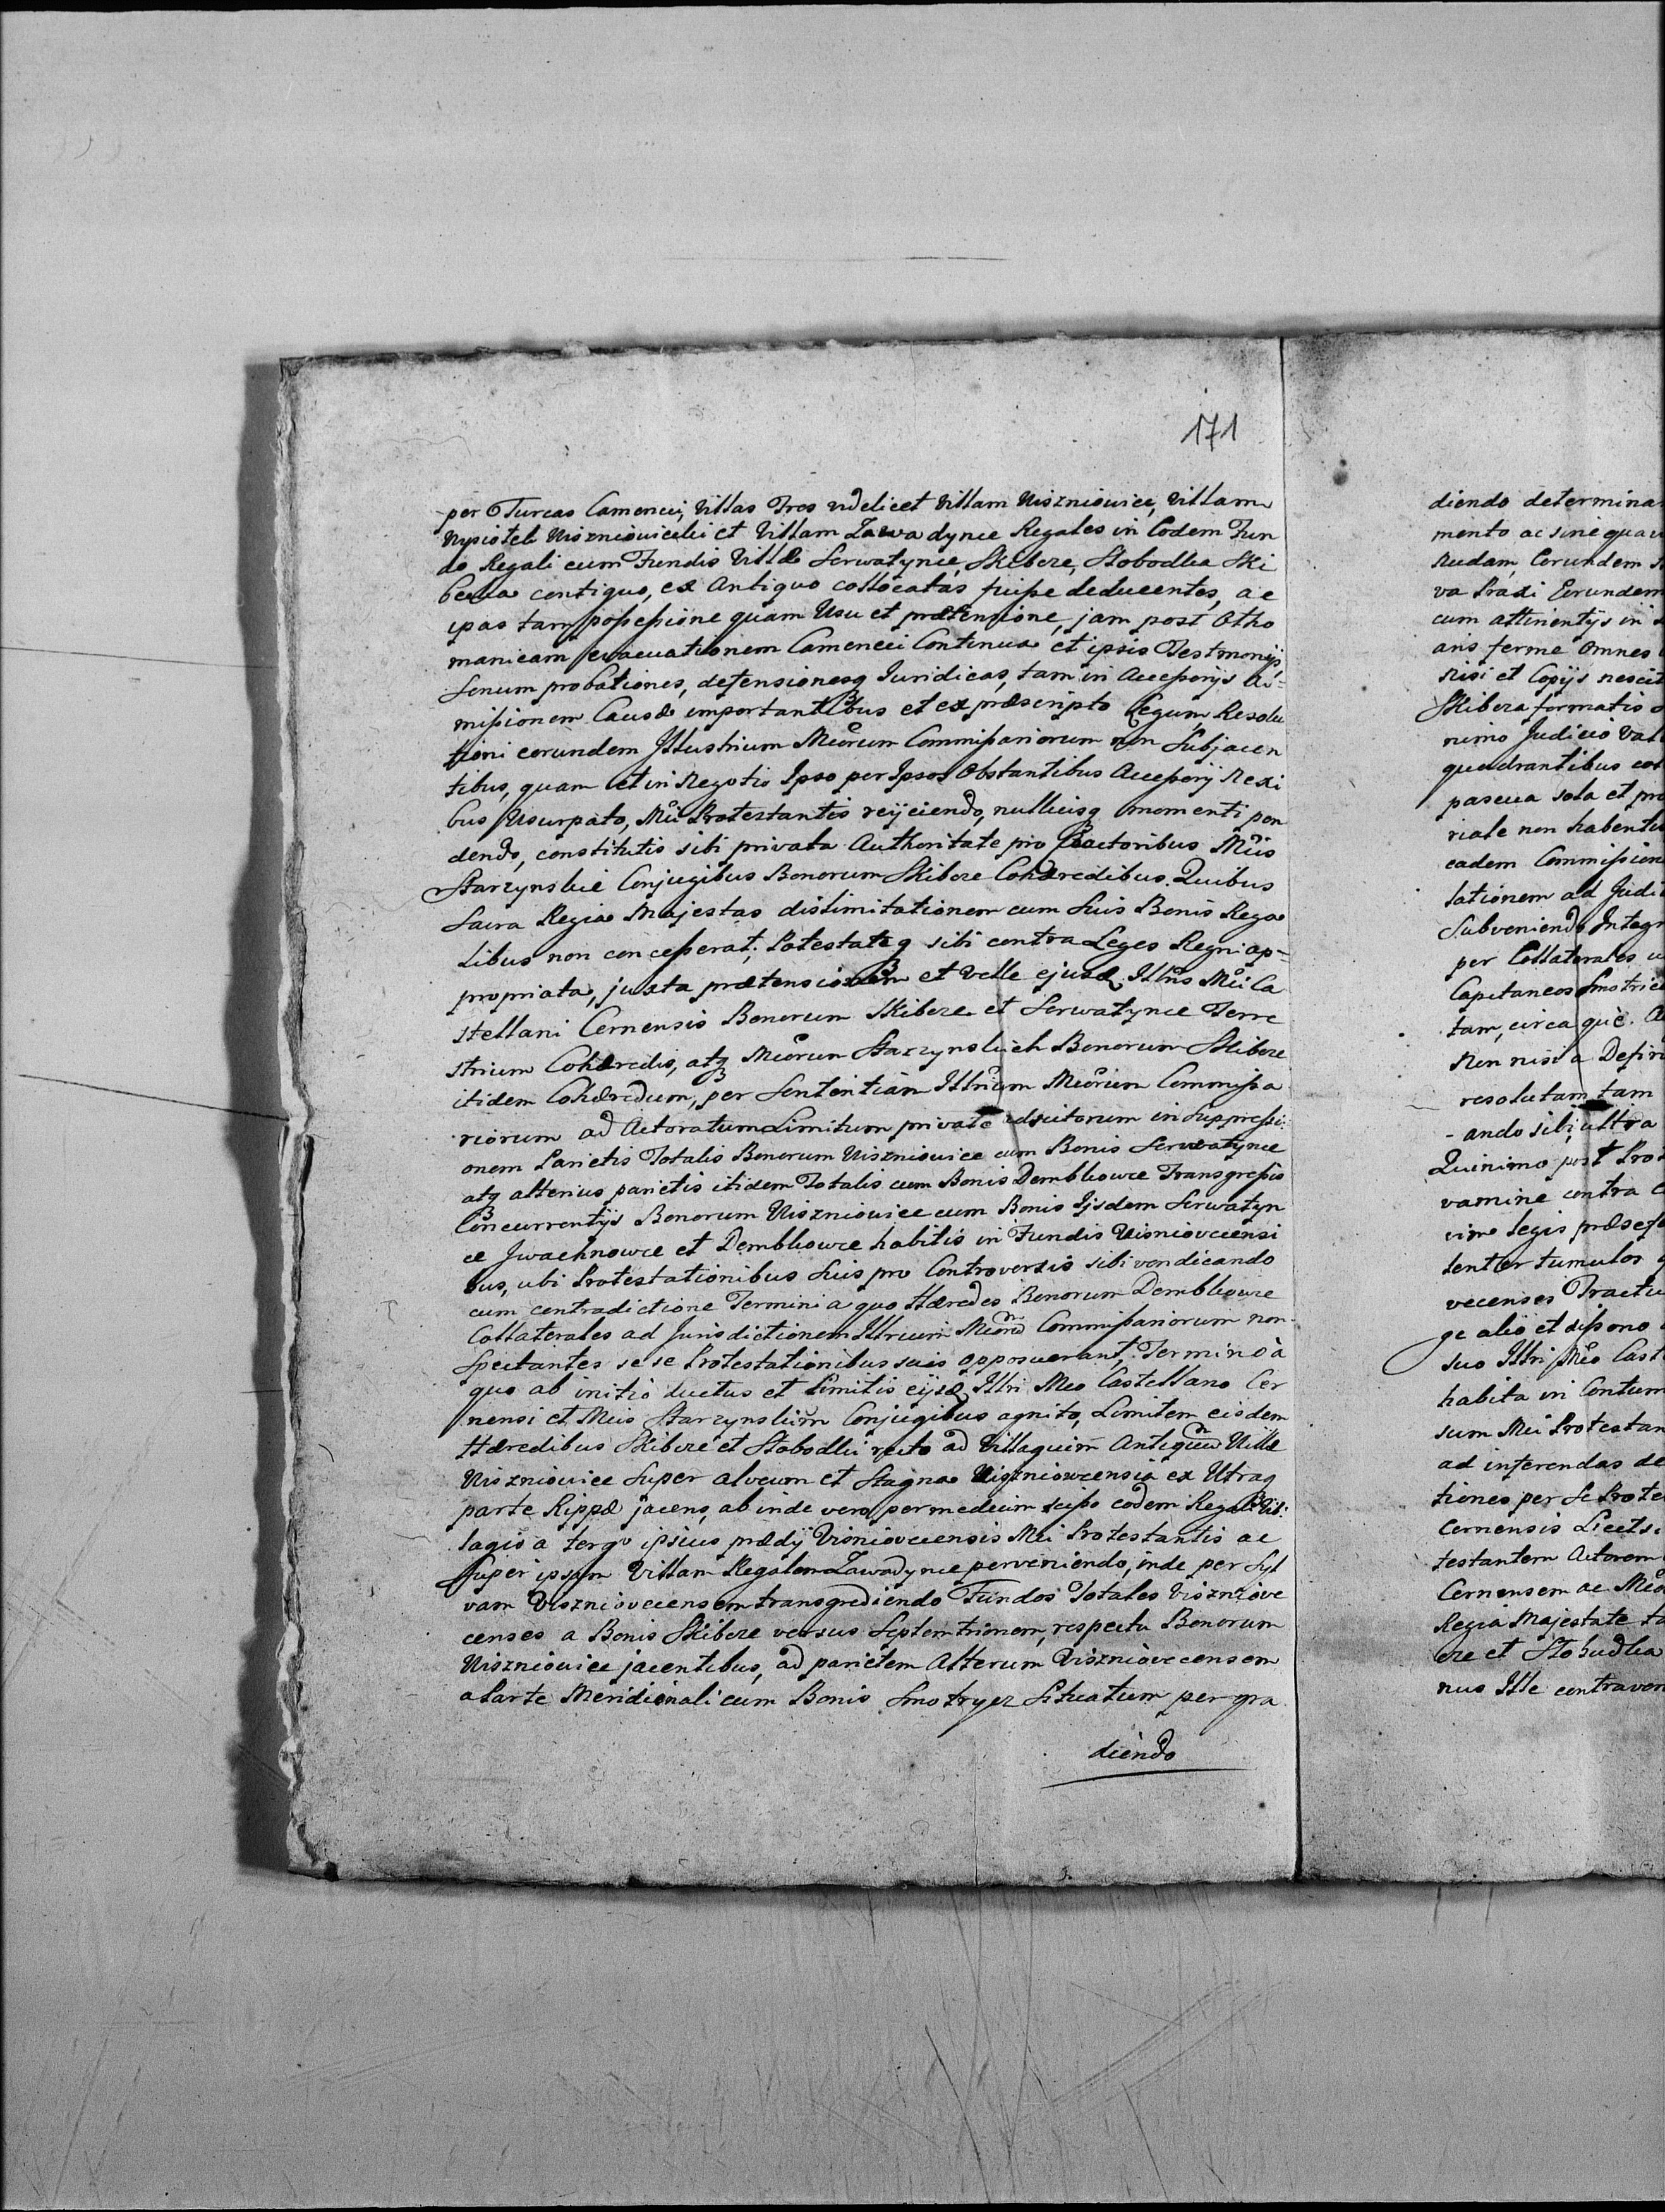 171
per Turcas Camenici, Villas Tres videlicet Villam Uiszniowice, Villam
Wysiołek Uiszniowiecki et Villam Zawadynce Regales in Eodem Fun
do Regali cum Fundis Villæ Serwatynce, Skibeze, Słobodka Ski
contiguo, ex Antiquo collocatas fuiſse deducentes, ac
ipas tam poſseſsione quam Usu et prætensione, jam post Otho
manicam evacuationem Cameneci Continua et ipsis Testmonijs,
Senum probationes, defensionesq3 Juridicas, tam in Acceſsorijs
miſsionem Causæ importantibus et ex præscripto Legum Resolu
tioni eorundem Jllustrium Mcorum Commiſsariorum non Subjacen
tibus, quam et in Negotio Ipso per Ipsos Obstantibus Acceſsorij Nexi
bus Usurpato, Mci Protestantis reijciendo, nulliusq3 momenti pon
dendo, constitutis sibi privata Authoritate pro Actoribus Mcis
Starzynskie Conjugibus Bonorum Skibeze Cohæredibus. Quibus
Sacra Regia Majestas dislimitationem cum Suis Bonis Rega
libus non conceſserat; Potestateq3 sibi contra Leges Regni ap=
propriata, juxta prætensionem et velle ejusd Illris Mci Ca
stellani Cernensis Bonorum Skibeze et Serwatynce Terre
strium Cohæredis, atq3 Mcorum Starzynskich Bonorum Skibeze
itidem Cohæredum, per Sententiam Illrium Mcorum Commiſsa
riorum ad Actoratum Limitum private adscitorum in Suppreſsi:
onem Parietis Totalis Bonorum Uiszniowice cum Bonis Serwatynce
atq3 alterius parietis itidem Totalis cum Bonis Dembkowce Transgreſsis
Concurrentijs Bonorum Uiszniowice cum Bonis Ijsdem Serwatyn
ce Jwachnowce et Dembkowce habitis in Fundis Uisniovecensi
bus, ubi Protestationibus Suis pro Controversis sibi vendicando
cum contradictione Termini a quo Hæredes Bonorum Dembkowce
Collaterales ad Jurisdictionem Illrium Commiſsariorum non
Spectantes se se Protestationibus suis opposuerant; Termino à
quo ab initio ductus et Limitis Illri Mco Castellano Cer
nensi et Mcis Starzynskim Conjugibus agnito, Limitem eisdem
Hæredibus Skibeze et Słobodki recto ad Villagium Antiquum Villæ
Uiszniowice Super alveum et Stagna Uiszniowcensia ex Utraq
parte Rippæ jacens, ab inde vero per medium scißo eodem Regali Vil:
lagio a tergo ipsius prædij Visniovecensis Mci Protestantis ac
Super ipsam Villam Regalem Zawadynce perveniendo, inde per Syl
vam Viszniovecensem transgrediendo Fundos Totales Viszniove
censes a Bonis Skibeze versus Septemtrionem, respectu Bonorum
Uiszniowice jacentibus, ad parietem Alterum Viszniovecensem
a Parte Meridionali cum Bonis Smotrycz Situatum per gra
diendo
diendo determina
mento ac sine
Nudam, Eorundem
va Praxi Eorundem
cum attinentijs in
aris ferme Omnes
Nisi et Copijs nescit
Skibeza formatis
nimo Judicio
quadrantibus
pascua sola et
riale non
eadem Commiſsion
lationem ad
Subveniendo
per Collaterales
Capitaneos Smotric
tam, circa
Non nisi a
resolutam tam
ando sibi ultra
Quinimo post
vamine contra
legis
tumulos
vecenses
alio et
suo Illri Mco Cast
habita in Contum
sum Mci Protestan
ad inferendas de
tiones per Se Prote
Cernensis
testantem Actorem
Cernensem ac
Regia Majestate
et
nus Ille